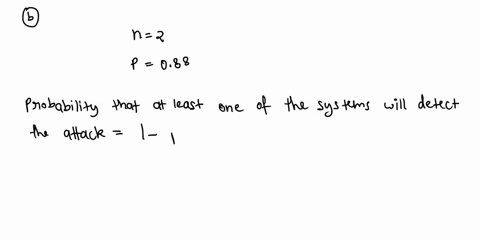 (b)
n = 2
P = 0.88
Probability that at least one of the systems will detect
the attack = 1 -